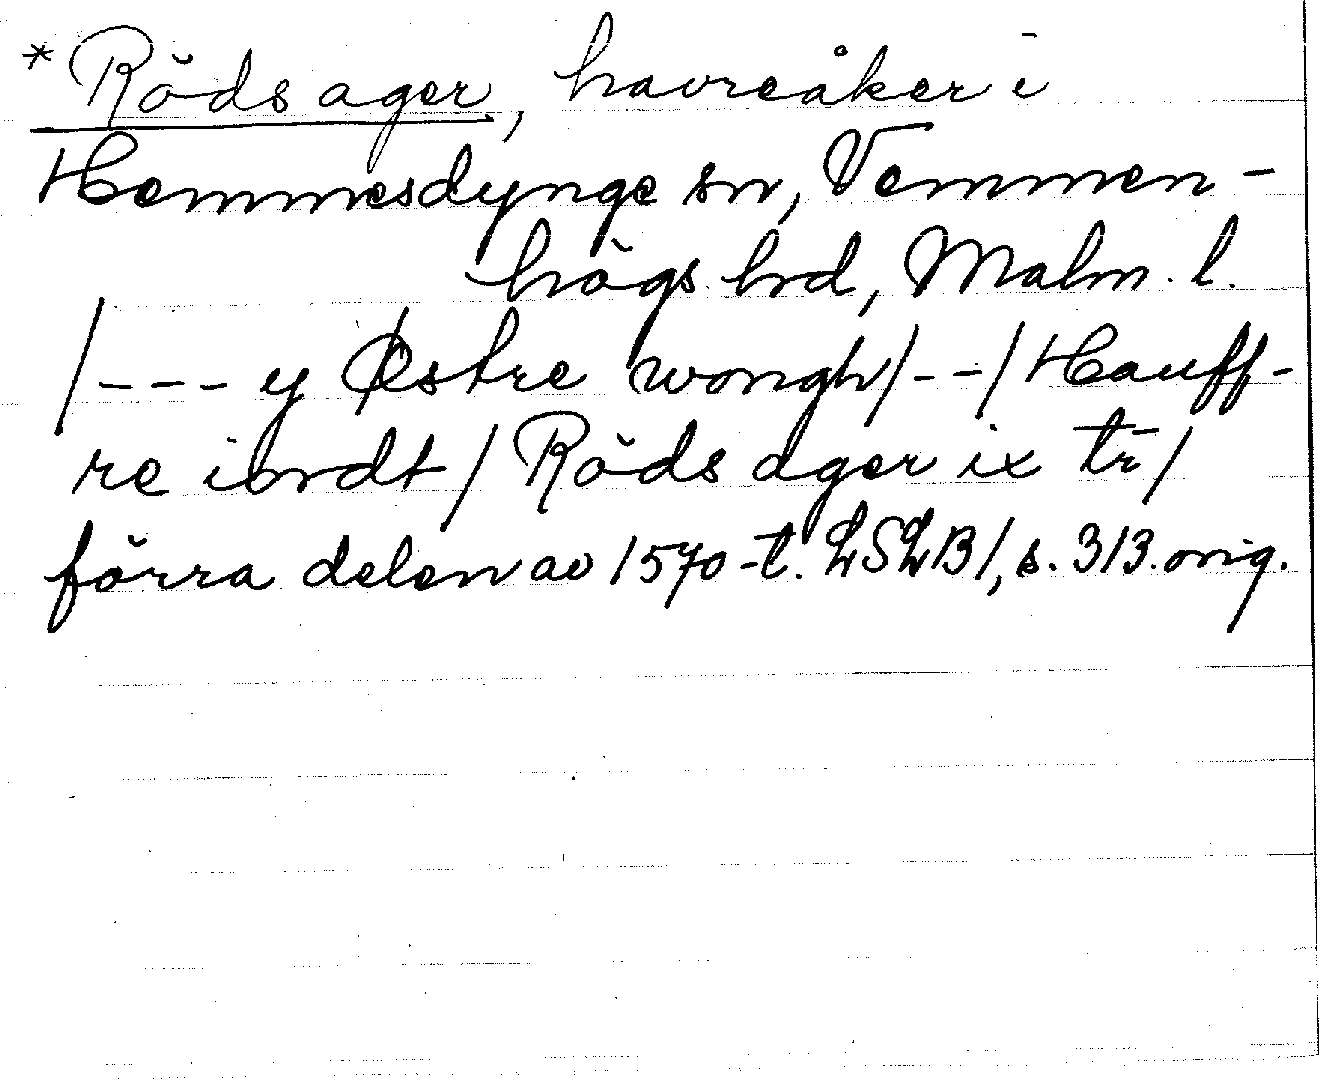 *Rödsager, havreåker i
Hemmesdynge sn, Vemmen-
högs hrd, Malm. l.
/--- y Østre wongh/--/Hauff-
re iordt/Röds ager ix tr̄/
förra delen av 1570-t. LSLB1, s. 313. orig.